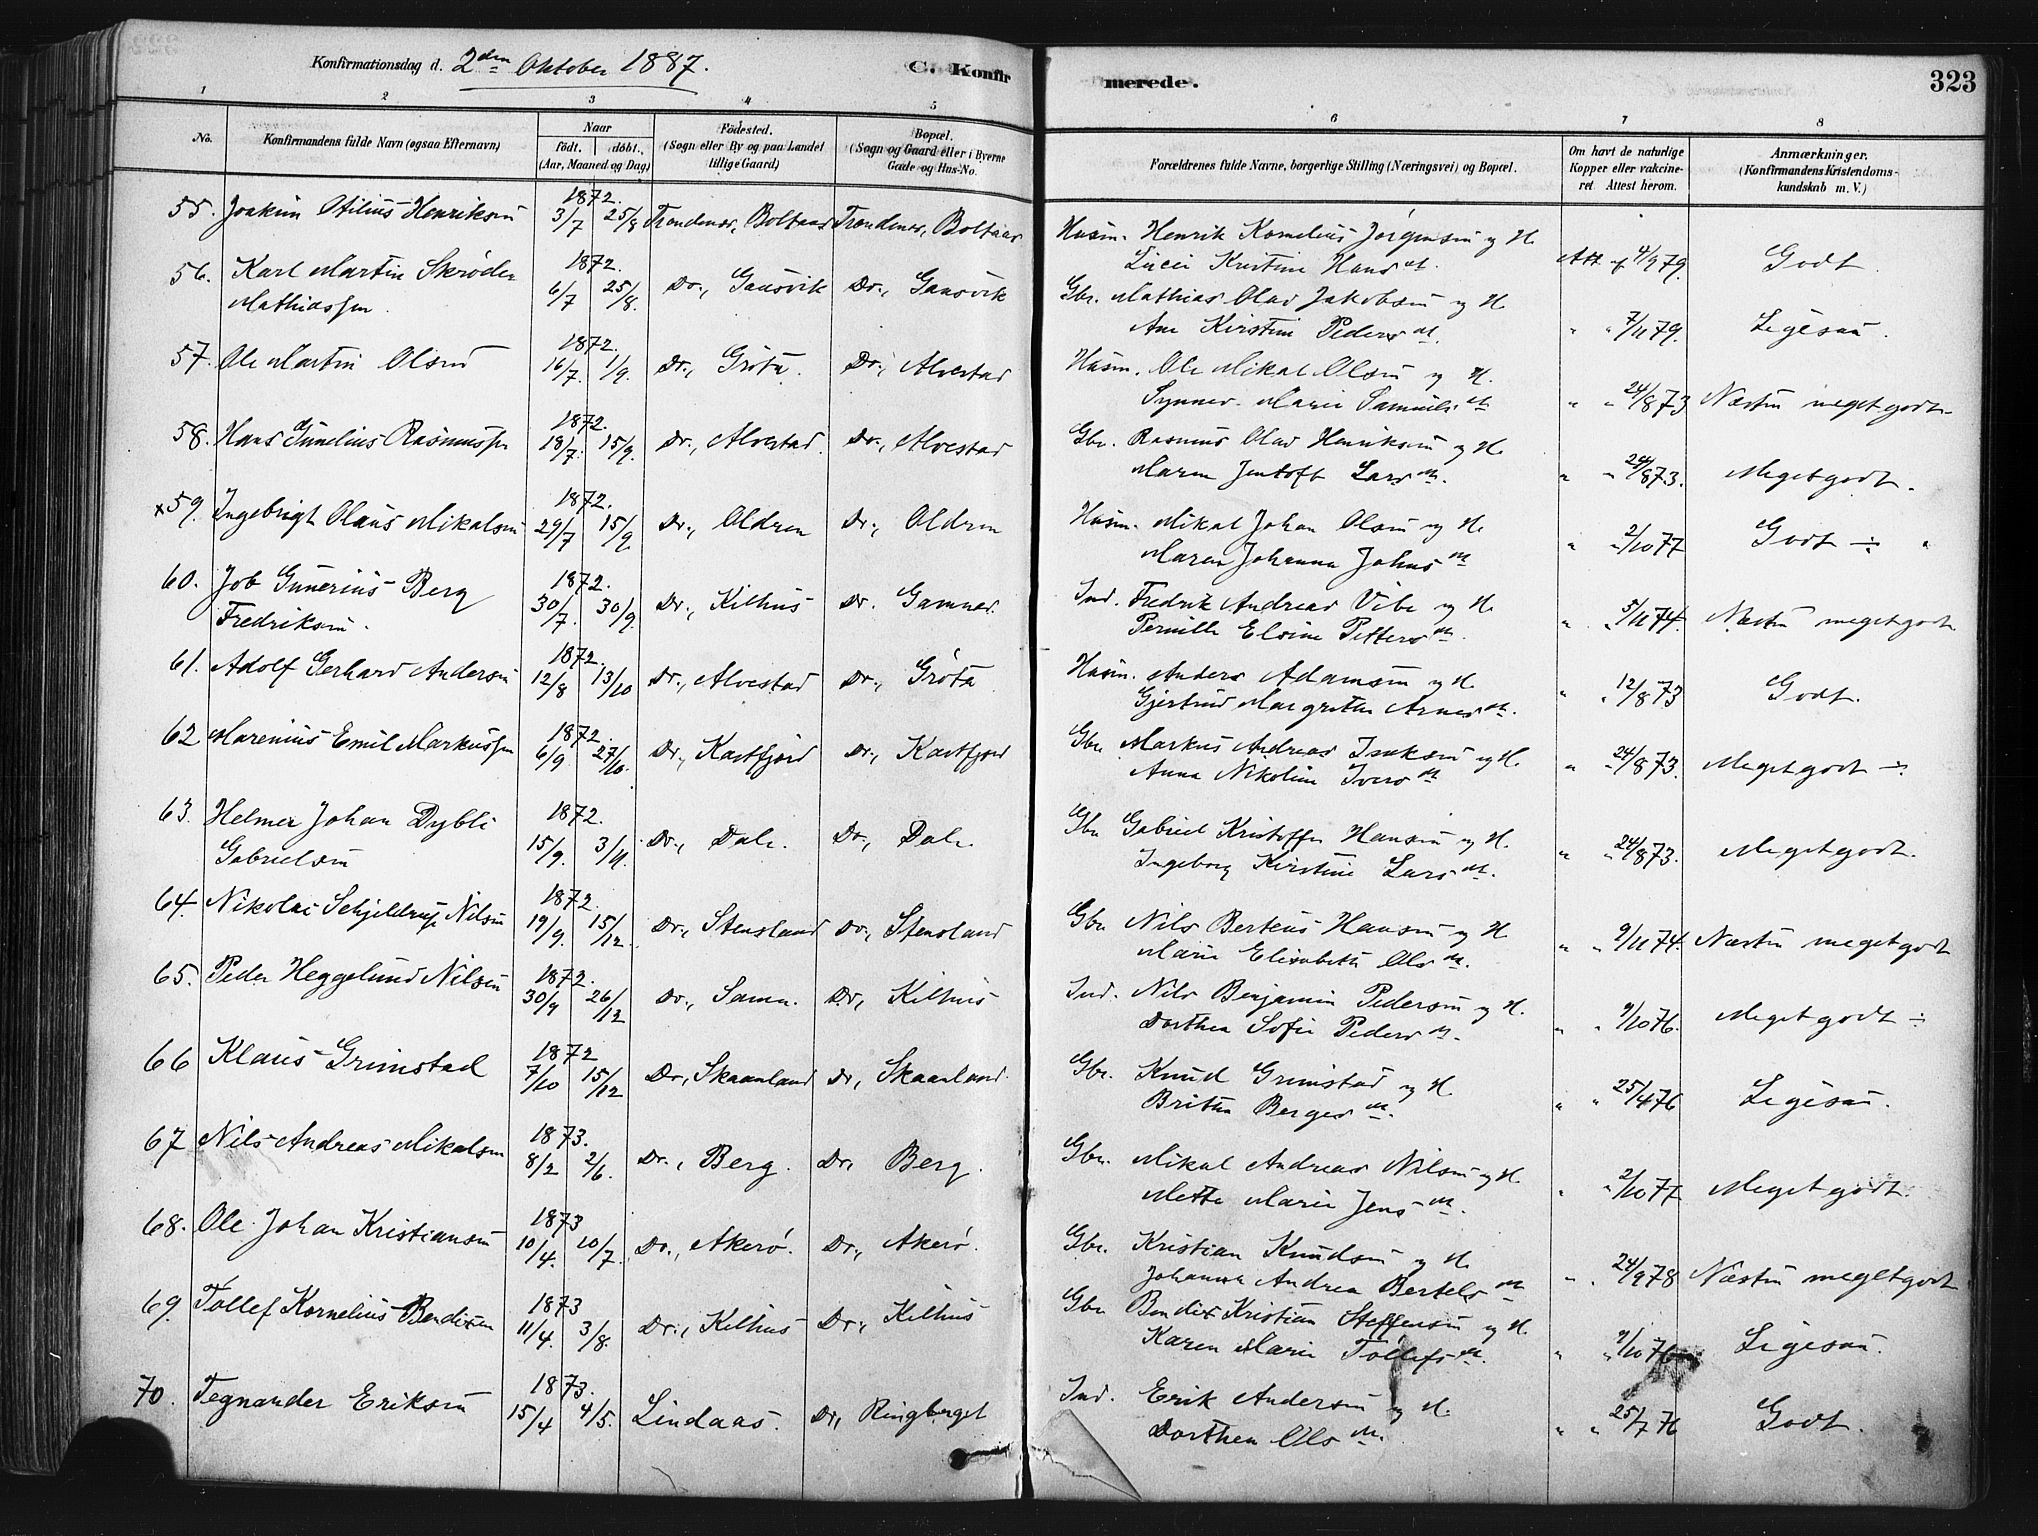 Konfirmationsdag d. 2den Oktober 1887.
C. Konfirmerede.
323
1 2 3 4 5 6 7 8
No.
Konfirmandens fulde Navn (ogsaa Efternavn)
Naar
födt. döbt.
(Aar, Maaned og Dag)
Födested.
(Sogn eller By og paa Landet
tillige Gaard)
Bopæl.
(Sogn og Gaard eller i Byerne
Gade og Hus-No.
Forældrenes fulde Navne, borgerlige Stilling (Næringsvei) og Bopæl.
Om havt de naturlige
Kopper eller vakcine-
ret. Attest herom.
Anmærkninger.
(Konfirmandens Kristendoms-
kundskab m. V.)
55. Joakim Otilius Henriksen 1872. 3/7 25/8 Trondenes, Boltaas Trondenes, Boltaas Husm. Henrik Kornelius Jørgensen og H.
Lucie Kristine Hans dt. Att. af 4/9 79. Godt.
56. Karl Martin Skrøder
Mathiassen. 1872. 6/7 25/8. Do., Gausvik Do., Gausvik Gbr. Mathias Olai Jakobsen og H.
Ane Kirstine Peders dt. " " 7/11 79. Ligesaa.
57. Ole Martin Olsen 1872. 16/7. 1/9. Do., Grøta. Do., Alvestad Husm. Ole Mikal Olsen og H.
Synnev. Marie Samuels dt. " " 24/8 73 Næsten meget godt.
58. Hans Gunelius Rasmussen 1872. 18/7. 15/9. Do., Alvestad. Do., Alvestad Gbr. Rasmus Olai Henriksen og H.
Maren Jentoft Lars dt. " " 24/8 73. Meget godt.
x59. Ingebrigt Olaus Mikalsen 1872. 29/7 15/9. Do., Aldren Do., Aldren Husm. Mikal Johan Olsen og H.
Maren Johanna Johns dt " " 2/10 77 Godt ÷ "
60. Job Gunerius Berg
Fredriksen. 1872. 30/7. 30/9. Do., Kilhus Do. Gamnes. Ind. Fredrik Andreas Vibe og H.
Pernille Elsine Petters dt. " " 5/11 74. Næsten meget godt.
61. Adolf Gerhard Andersen 1872. 12/8 13/10 Do., Alvestad Do., Grøta Husm. Anders Adamsen og H.
Gjertrud Margrethe Arnes dt. " " 12/8 73 Godt.
62 Marenius Emil Markussen 1872. 6/9 27/10. Do., Kastfjord Do., Kastfjord Gbr. Markus Andreas Isaksen og H.
Anna Nikoline Ivers dt " " 24/8 73. Meget godt ÷
63. Helmer Johan Dybli
Gabrielsen 1872. 15/9. 3/11. Do., Dale. Do., Dale. Gbr Gabriel Kristoffer Hansen og H.
Ingeborg Kirstine Lars dt. " " 24/8 73. Meget godt.
64. Nikolai Schjeldrup Nilsen 1872. 19/9. 15/12. Do., Stensland Do., Stensland Gbr Nils Berteus Hansen og H
Marie Elisabeth Ols dt. " " 9/11 74. Næsten meget godt
65. Peder Heggelund Nilsen 1872. 30/9 26/12 Do., Sama. Do, Kilhus Ind. Nils Benjamin Pedersen og H.
Dorthea Sofie Peders dt. " " 9/10 76. Meget godt ÷
66 Klaus Grimstad 1872 7/10 15/12 Do., Skaanland Do, Skaanland. Gbr. Knud Grimstad og H.
Britha Berges dt. " " 25/4 76 Ligesaa.
67 Nils Andreas Mikalsen 1873. 8/2 2/6. Do., Berg. Do, Berg. Gbr. Mikal Andreas Nilsen og H.
Mette Marie Jens dt. " " 2/10 77 Meget godt.
68. Ole Johan Kristiansen 1873 10/4. 10/7. Do., Akerø. Do., Akerø. Gbr. Kristian Knudsen og H
Johanna Andrea Bertels dt " " 24/9 78 Næsten meget godt
69. Tollef Kornelius Bendixen 1873 11/4. 3/8. Do., Kilhus Do., Kilhus Gbr Bendix Kristian Steffensen og H.
Karen Marie Tollefs dt. " " 9/10 76 Ligesaa.
70. Tegnander Eriksen 1873. 15/4 4/5. Lindaas. Do, Ringberget Ind. Erik Andersen og H.
Dorthea Ols dt. " " 25/7 76 Godt.